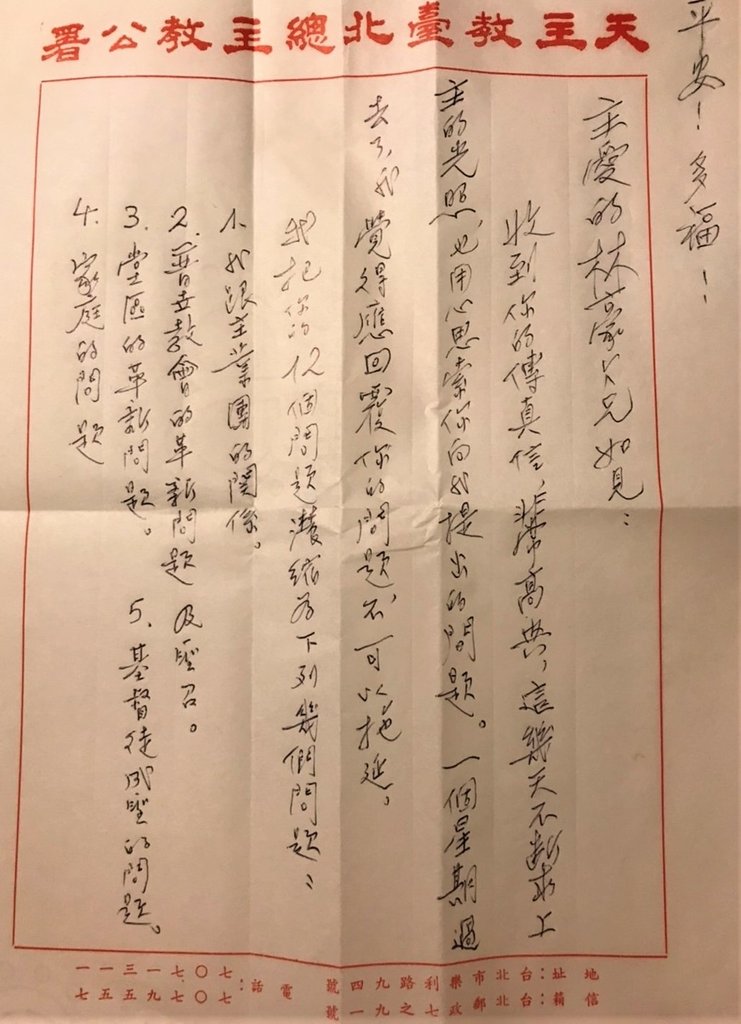 天主教臺北總主教公署
平安！多福！
主愛的林豪兄如見：
收到你的傳真信，非常高興，這幾天不斷求上
主的光照，也用心思索你向我提出的問題。一個星期過
去了，我覺得應回覆你的問題，不可以拖延。
我把你的12個問題濃縮為下列幾個問題：
1. 我跟主業團的關係。
2. 普世教會的革新問題及聖召。
3. 堂區的革新問題。
4. 家庭的問題
5. 基督徒成聖的問題。
地址：台北市樂利路九四號 電話：七〇七一三一一
信箱：台北郵政七之九一號 七〇七九五五七